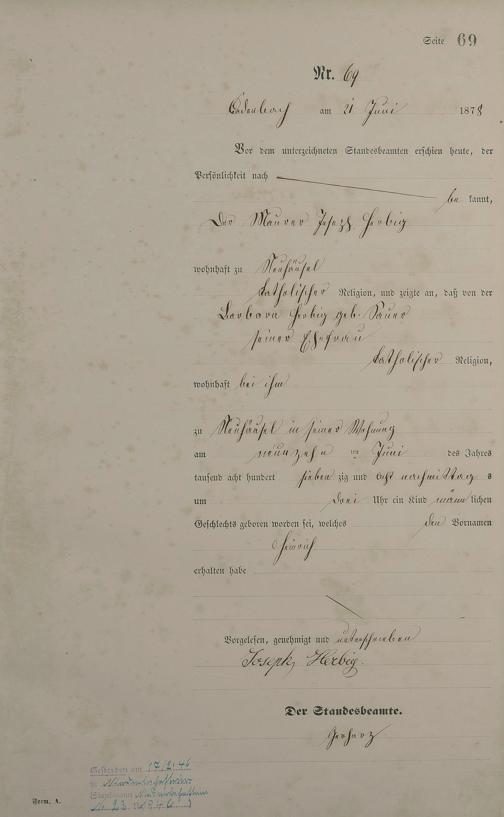 Seite 69
Nr. 69
Cadenbach am 21 Juni 1878
Vor dem unterzeichneten Standesbeamten erschien heute, der
Persönlichkeit nach
be kannt,
Der Maurer Joseph Herbig
wohnhaft zu Neuhäusel
katholischer Religion, und zeigte an, daß von der
Barbara Herbig geb. Sauer
seiner Ehefrau
katholischer Religion,
wohnhaft bei ihm
zu Neuhäusel in seiner Wohnung
am neunzehn ten Juni des Jahres
tausend acht hundert sieben zig und acht nachmittag s
um drei Uhr ein Kind männ lichen
Geschlechts geboren worden sei, welches den Vornamen
Heinrich
erhalten habe
Vorgelesen, genehmigt und unterschrieben
Joseph Herbig.
Der Standesbeamte.
Gerharz
Gestorben am 17.2.46
in
Standesamt
Nr. 23
Form. A.